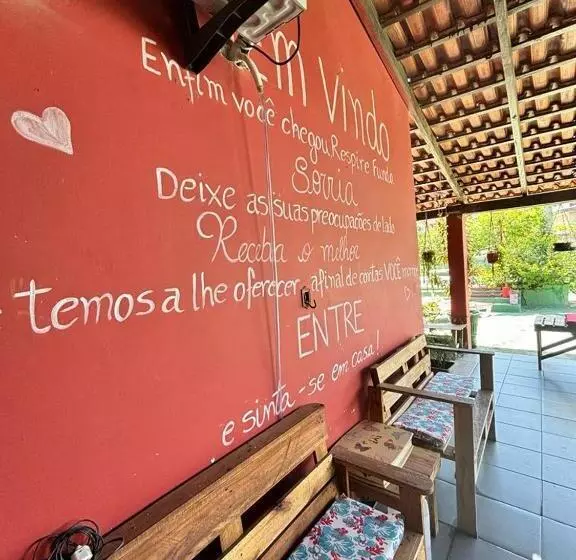 em Vindo
Enfim você chegou, Respire Fundo
Sorria
Deixe as suas preocupações de lado
Receba o melhor
temos a lhe oferecer, afinal de contas VOCÊ merece
ENTRE
e sinta-se em casa!